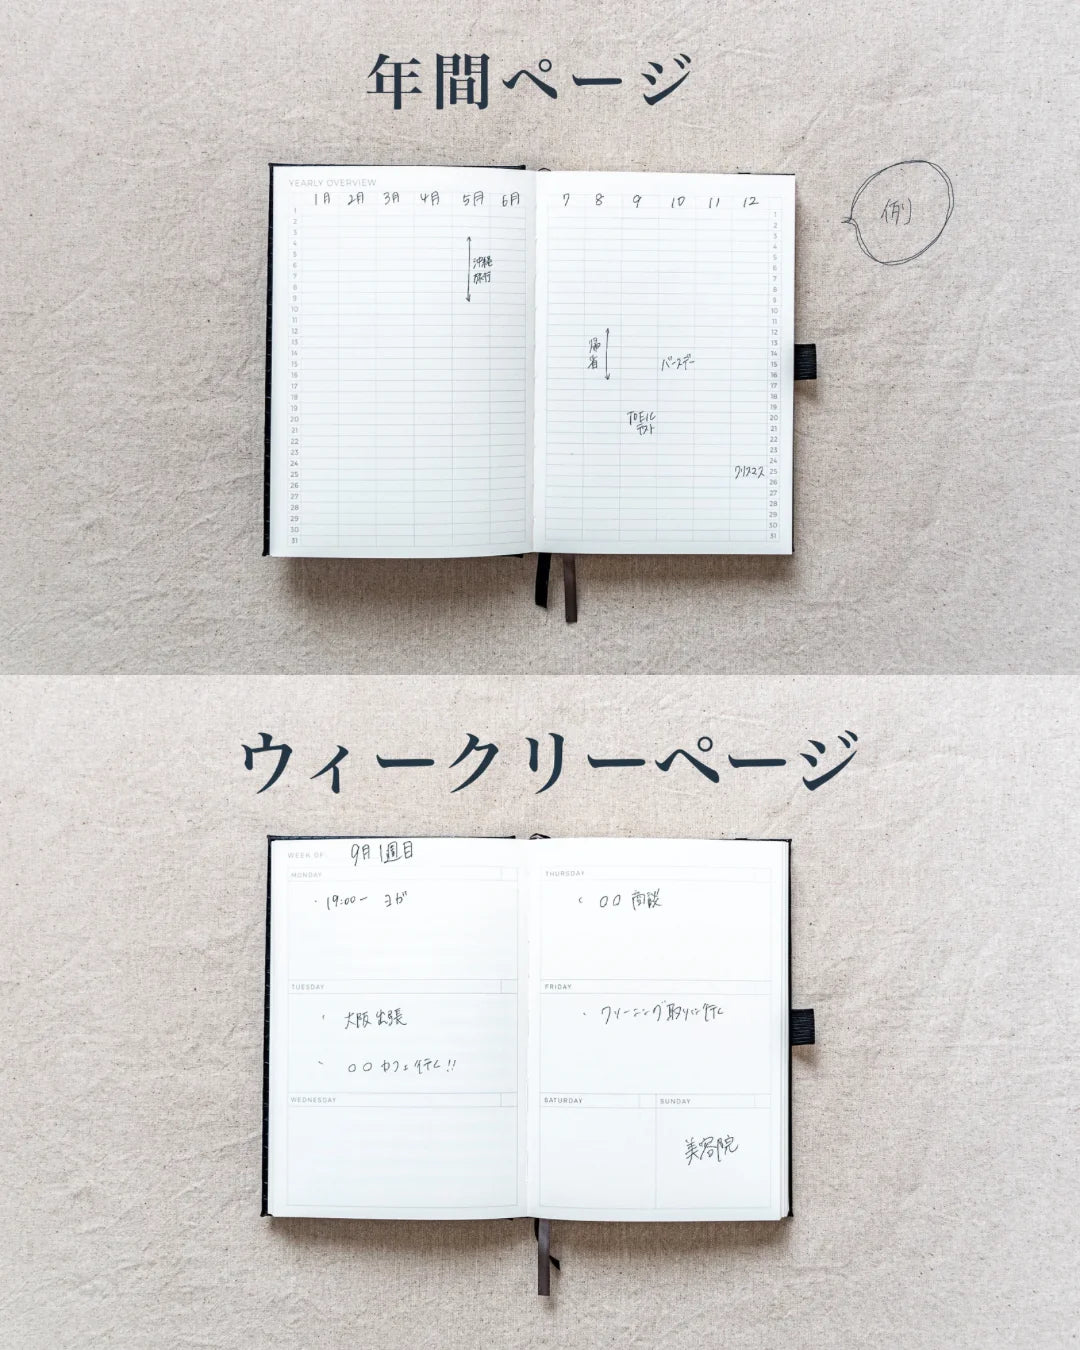 年間ページ
YEARLY OVERVIEW
1月 2月 3月 4月 5月 6月
7 8 9 10 11 12
例
1
2
3
4
5
6
7
8
9
10
11
12
13
14
15
16
17
18
19
20
21
22
23
24
25
26
27
28
29
30
31
沖縄
旅行
帰
省
バースデー
TOEIC
テスト
クリスマス
1
2
3
4
5
6
7
8
9
10
11
12
13
14
15
16
17
18
19
20
21
22
23
24
25
26
27
28
29
30
31
ウィークリーページ
WEEK OF: 9月1週目
MONDAY
・19:00ー ヨガ
TUESDAY
・大阪出張
・○○カフェ行く!!
WEDNESDAY
THURSDAY
・○○ 商談
FRIDAY
・クリーニング取りに行く
SATURDAY
SUNDAY
美容院